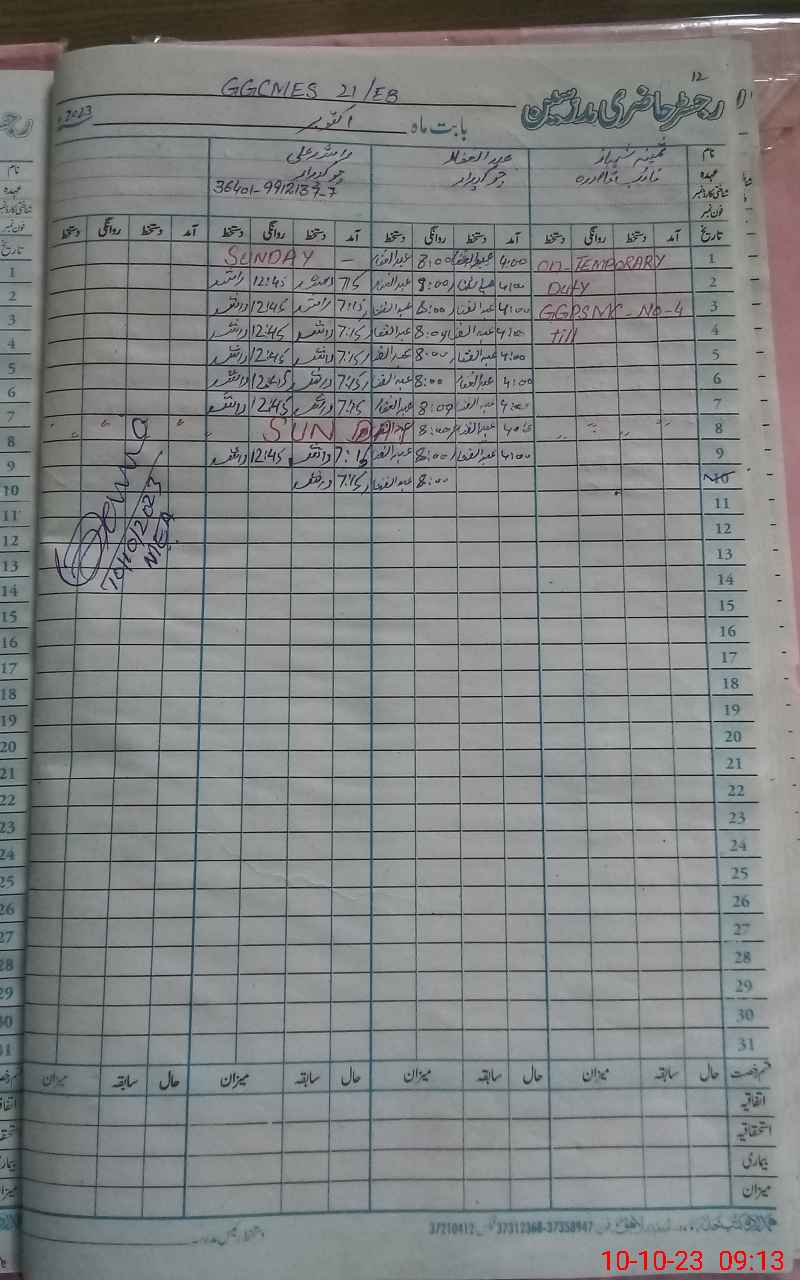 12
GGCMES 21/EB
رجسٹر حاضری مدرسین
بابت ماہ اکتوبر 2023
نام ثمینہ شہباز عبدالغفار راشد علی
عہدہ نائب قاصدہ چوکیدار چوکیدار
شناختی کارڈ نمبر 36401-9912137-7
فون نمبر
تاریخ آمد دستخط روانگی دستخط آمد دستخط روانگی دستخط آمد دستخط روانگی دستخط آمد دستخط روانگی دستخط
1 ON-TEMPORARY 4:00 عبدالغفار 8:00 عبدالغفار — SUNDAY
2 Duty 4:00 عبدالغفار 8:00 عبدالغفار 7:15 راشد 12:45 راشد
3 GGPSMC-NO-4 4:00 عبدالغفار 8:00 عبدالغفار 7:15 راشد 12:45 راشد
4 till 4:00 عبدالغفار 8:00 عبدالغفار 7:15 راشد 12:45 راشد
5 4:00 عبدالغفار 8:00 عبدالغفار 7:15 راشد 12:45 راشد
6 4:00 عبدالغفار 8:00 عبدالغفار 7:15 راشد 12:45 راشد
7 4:00 عبدالغفار 8:00 عبدالغفار 7:15 راشد 12:45 راشد
8 4:00 عبدالغفار 8:00 عبدالغفار SUNDAY
9 4:00 عبدالغفار 8:00 عبدالغفار 7:15 راشد 12:45 راشد
10 8:00 عبدالغفار 7:15 راشد
10/10/2023
MEA
11
12
13
14
15
16
17
18
19
20
21
22
23
24
25
26
27
28
29
30
31
قسم رخصت حال سابقہ میزان حال سابقہ میزان حال سابقہ میزان حال سابقہ میزان
اتفاقیہ
استحقاقیہ
بیماری
میزان
37210412 37312368-37358947
10-10-23 09:13